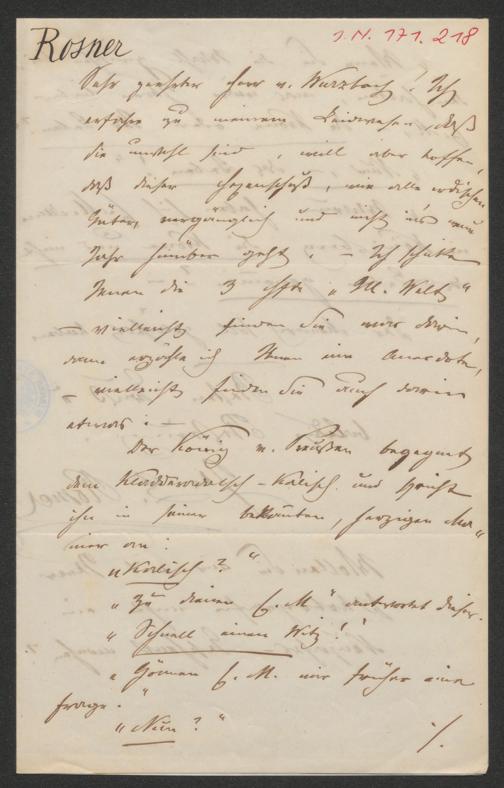 Rosner
J.N. 171.218
Sehr geehrter Herr v. Wurzbach! Ich
erfahre zu meinem Leidwesen, daß
Sie unwohl sind, will aber hoffen,
daß dieser Hexenschuß, wie alle irdischen
Güter, vergänglich und nicht ins neue
Jahr hinüber geht. – Ich schicke
Ihnen die 3 Hfte „M. Welt“
– vielleicht finden Sie was darin,
dann erzähle ich Ihnen eine Anecdote,
– vielleicht finden Sie auch darin
etwas: –
Der König v. Preußen begegnet
dem Kladderadatsch-Kalisch und spricht
ihn in seiner bekannten, herzigen Ma„
nier an:
„Kalisch?“
„Zu dienen E. M“ antwortet dieser.
„Schnell einen Witz!“
„Gönnen E. M. mir früher eine
Frage.“
„Nun?“
./.